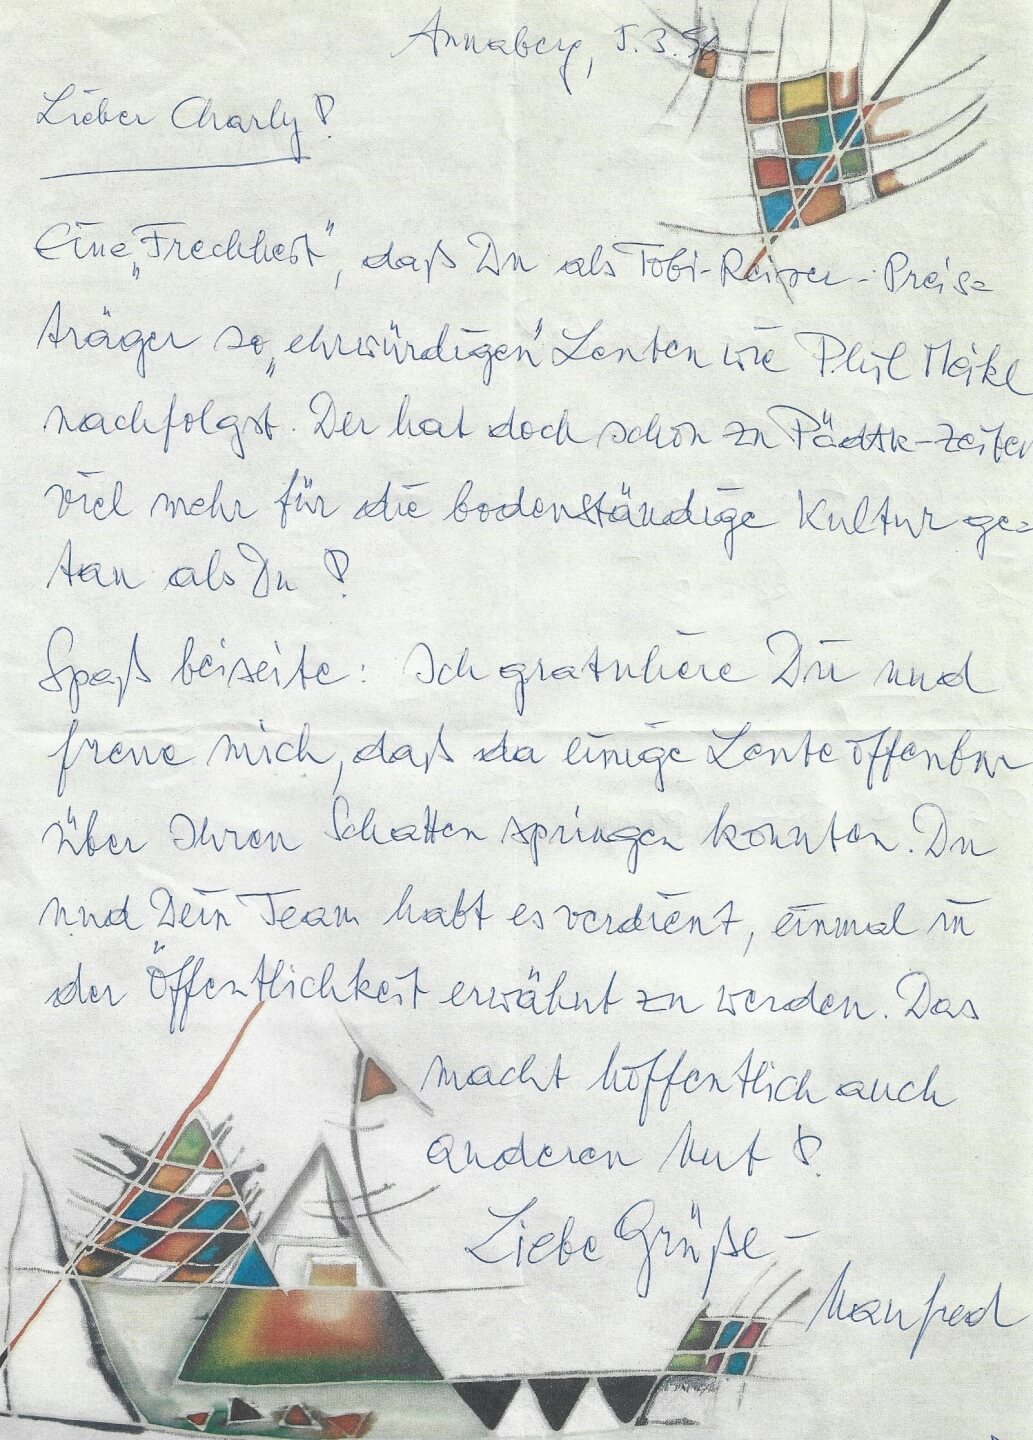 Annaberg, 5.3.
Lieber Charly!
Eine „Frechheit", daß Du als Tobi-Reiser-Preis=
träger so „ehrwürdigen" Leuten wie Phil Meikl
nachfolgst. Der hat doch schon zu PädAk-Zeiten
viel mehr für die bodenständige Kultur ge=
tan als Du!
Spaß beiseite: Ich gratuliere Dir und
freue mich, daß da einige Leute offenbar
über Ihren Schatten springen konnten. Du
und Dein Team habt es verdient, einmal in
der Öffentlichkeit erwähnt zu werden. Das
macht hoffentlich auch
anderen Mut!
Liebe Grüße -
Manfred